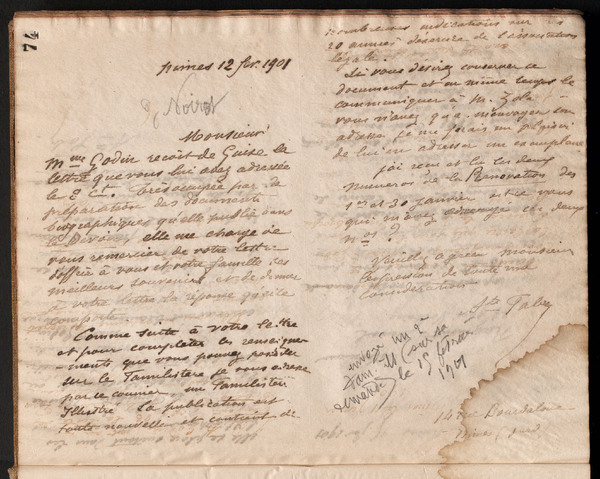 74
Nimes 12 fev. 1901
Noirot
Monsieur
Mme Godin reçoit de Guise la
lettre que vous lui avez adressée
le 8 Ct. Très occupée par la
préparation des documents
biographiques qu'elle publie dans
le Devoir, elle me charge de
vous remercier de votre lettre
d'offrir à vous et votre famille ses
meilleurs souvenirs et de donner
à votre lettre la réponse qu'elle
comporte.
Comme suite à votre lettre
et pour compléter les renseigne-
ments que vous pouvez posséder
sur le Familistère je vous adresse
par ce courrier un Familistère
Illustré. La publication est
toute nouvelle et contient de
nombreuses indications sur les
20 années d'exercice de l'association
légale.
Si vous désirez conserver ce
document et en même temps le
communiquer à M. Zola
vous n'avez qu'à m'envoyer son
adresse je me ferais un plaisir
de lui en adresser un exemplaire
J'ai reçu et lu les deux
numéros de la Rénovation des
et 30 janvier est-ce vous
qui m'avez adressé ces deux
nos ?
Veuillez agréer Monsieur
l'expression de toute ma
considération
Fabre
envoyé un 2e
Fam. Ill sur sa
demande le 15 février
1901
14 rue Bourdaloue
Nimes, Gard